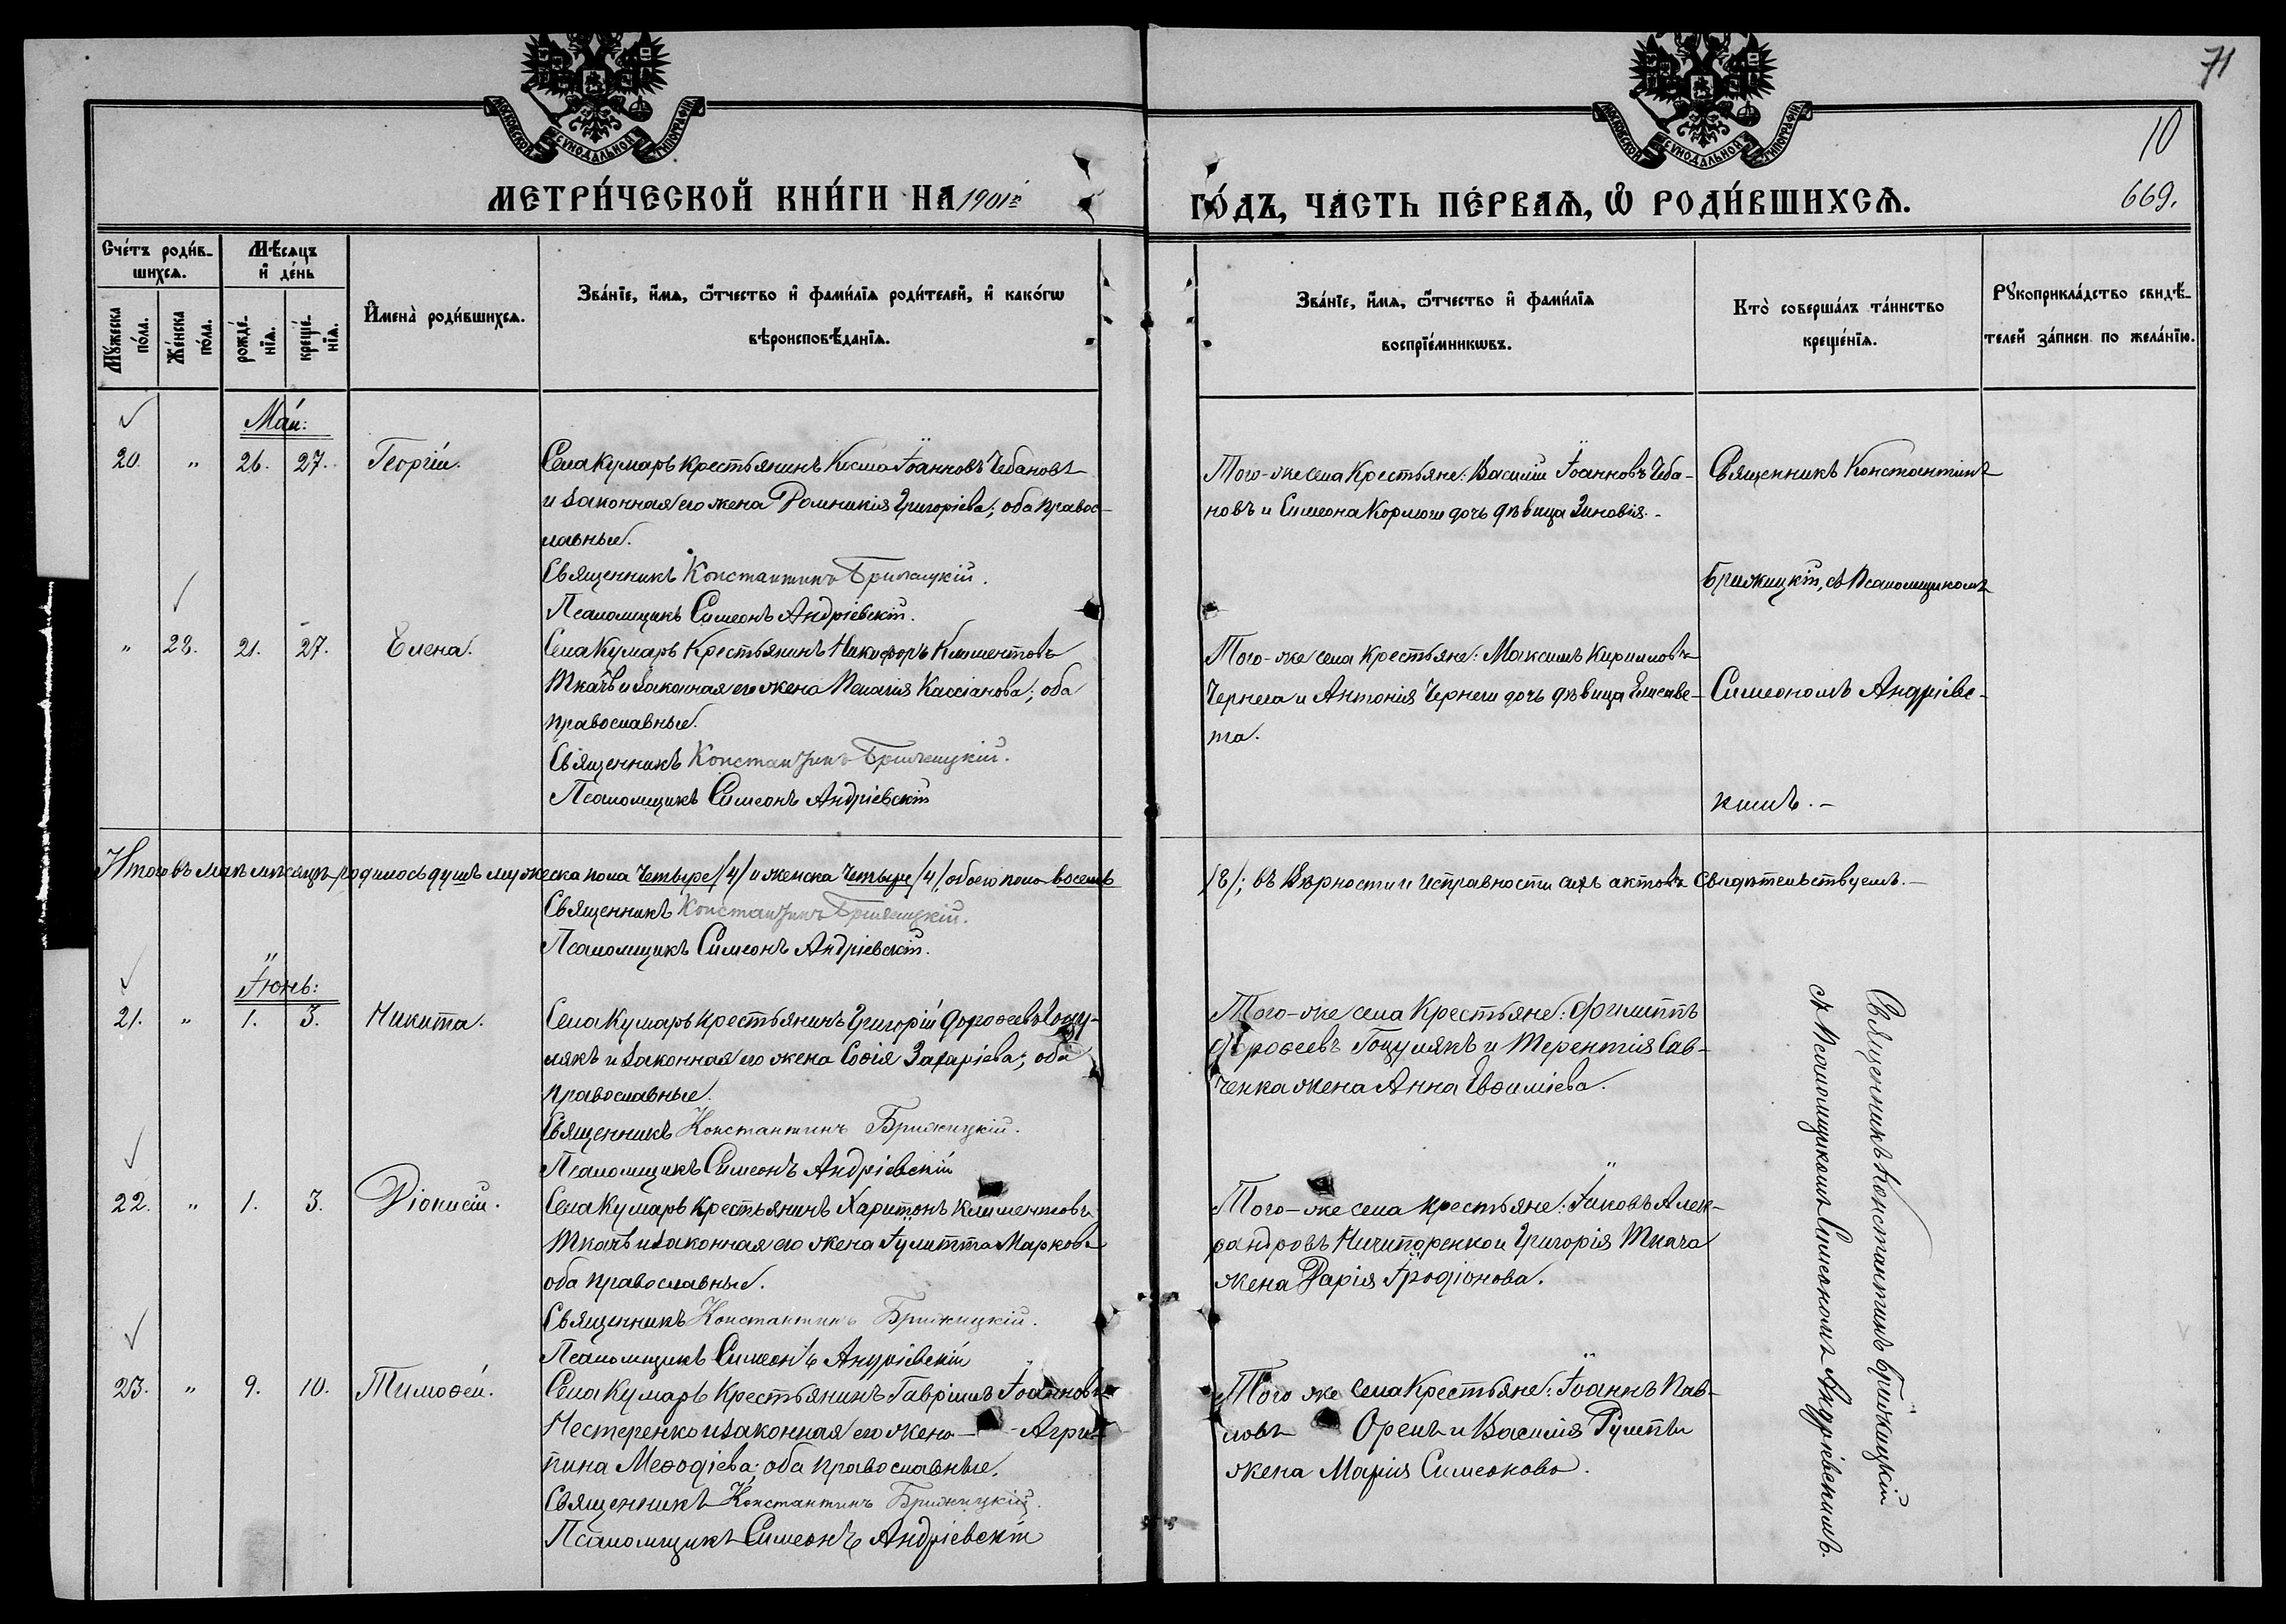 МОСКОВСКОЙ СУНОДАЛЬНОЙ ТИПОГРАФІИ
МОСКОВСКОЙ СУНОДАЛЬНОЙ ТИПОГРАФІИ
71
10
669.
МЕТРИ́ЧЕСКОЙ КНИ́ГИ НА 1901й
ГО́ДЪ, ЧА́СТЬ ПЕ́РВАѦ, Ѡ҆ РОДИ́ВШИХСѦ.
Сче́тъ роди́в-
шихсѧ.
Мѣ́сѧцъ
и҆ де́нь
Мꙋ́жеска по́ла.
Же́нска по́ла.
рожде́-
нїѧ.
креще́-
нїѧ.
И҆мена̀ роди́вшихсѧ.
Зва́нїе, и҆́мѧ, ѻ҆́тчество и҆ фами́лїѧ роди́телей, и҆ како́гѡ
вѣроисповѣ́данїѧ.
Зва́нїе, и҆́мѧ, ѻ҆́тчество и҆ фами́лїѧ
воспрїе́мникѡвъ.
Кто̀ соверша́лъ та́инство
креще́нїѧ.
Рꙋкоприкла́дство свидѣ́-
телей за́писи по жела́нїю.
Май:
20. " 26. 27. Георгій.
Села Кумаръ крестьянинъ Косма Іоанновъ Чебановъ
и законная его жена Домникія Григоріева; оба правос-
лавные.
Священникъ Константинъ Брижицкій.
Псаломщикъ Симеонъ Андріевскій.
Того-же села Крестьяне: Василій Іоанновъ Чеба-
новъ и Симеона дочь дѣвица Зиновія.-
Священникъ Константинъ
Брижицкій, съ Псаломщикомъ
" 22. 21. 27. Елена.
Села Кумаръ Крестьянинъ Никифоръ Климентовъ
Ткачъ и законная его жена Пелагія Кассіанова; оба
православные.
Священникъ Константинъ Брижицкій.
Псаломщикъ Симеонъ Андріевскій
Того-же села Крестьяне: Максимъ Кирилловъ
Чернега и Антонія Чернеги дочь дѣвица Елисаве-
та.
Симеономъ Андріевс-
кимъ.-
Итого въ маѣ мѣсяцѣ родилось душъ мужеска пола четыре /4/ и женска четыре /4/ обоего пола восемь
/8/; въ вѣрности и исправности сихъ актовъ свидѣтельствуемъ.-
Священникъ Константинъ Брижицкій.
Псаломщикъ Симеонъ Андріевскій.
Іюнь:
21. " 1. 3. Никита.
Села Кумаръ крестьянинъ Григорій Дороѳеевъ Гоцу-
лякъ и законная его жена Софія Захаріева; оба
православные.
Священникъ Константинъ Брижицкій.
Псаломщикъ Симеонъ Андріевскій
Того-же села Крестьяне: Филиппъ
Дороѳеевъ Гоцулякъ и Терентія Сав-
ченка жена Анна Евѳиміева.
Священникъ Константинъ Брижицкій
съ Псаломщикомъ Симеономъ Андріевскимъ.
22. " 1. 3. Діонисій.
Села Кумаръ крестьянинъ Харитонъ Климентовъ
Ткачъ и законная его жена Іулитта Маркова
оба православные.
Священникъ Константинъ Брижицкій.
Псаломщикъ Симеонъ Андріевскій
Того-же села крестьяне: Іаковъ Алек-
сандровъ Ничипоренко и Григорія Ткача
жена Дарія Іродіонова.
23. " 9. 10. Тимоѳей.
Села Кумаръ Крестьянинъ Гавріилъ Іоанновъ
Нестеренко и законная его жена - - Агрип-
пина Меѳодіева; оба православные.
Священникъ Константинъ Брижицкій.
Псаломщикъ Симеонъ Андріевскій
Того же села Крестьяне: Іоаннъ Пав-
ловъ Орелъ и Василія
жена Марія Симеонова.